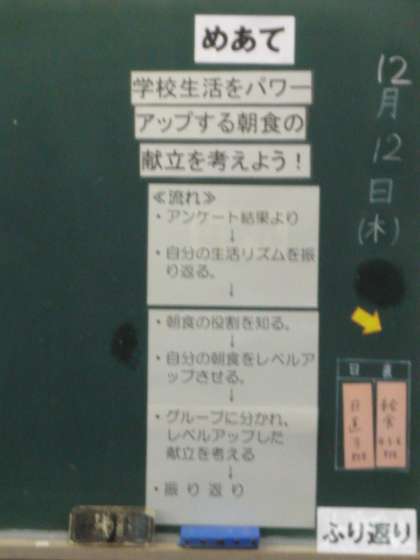 めあて
学校生活をパワー
アップする朝食の
献立を考えよう！
≪流れ≫
・アンケート結果より
↓
・自分の生活リズムを振
り返る。
↓
・朝食の役割を知る。
↓
・自分の朝食をレベルア
ップさせる。
↓
・グループに分かれ、
レベルアップした
献立を考える
↓
・振り返り
ふり返り
12月12日(木)
日直